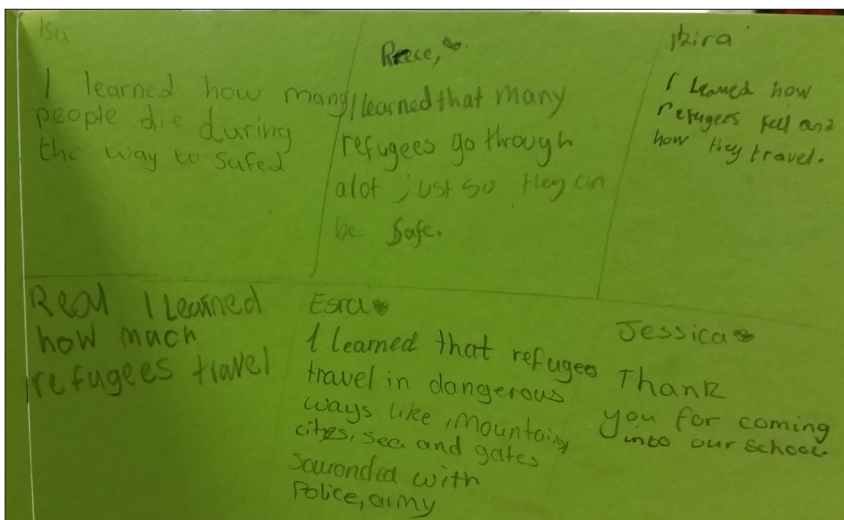 Isa
I learned how many
people die during
the way to safed
Reece,
I learned that many
refugees go through
alot just so they can
be safe.
I learned how
refugees fell and
how they travel.
Real I Learned
how much
refugees travel
Esra
I learned that refugee
travel in dangerous
ways like, mountains,
citys, sea and gates
souronded with
Police, army
Jessica
Thank
you for coming
into our school.